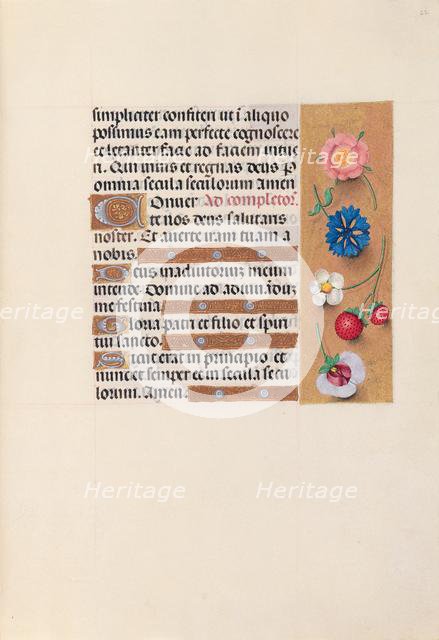 simpliciter confiteri ut i aliquo
possimus eam perfecte cognoscere
et letanter facie ad faciem intue
ri. Qui vivis et regnas deus P
omnia secula seculorum Amen
Onver Ad completor.
te nos deus salutaris
noster. Et averte iram tuam a
nobis.
Deus in adiutorium meum
intende. Domine ad adiuv
me festina
Gloria patri et filio et spiri
tui sancto.
Sicut erat in principio et
nunc et semper et in secula secu
lorum. Amen.
Heritage Heritage Heritage
Heritage Heritage Heritage